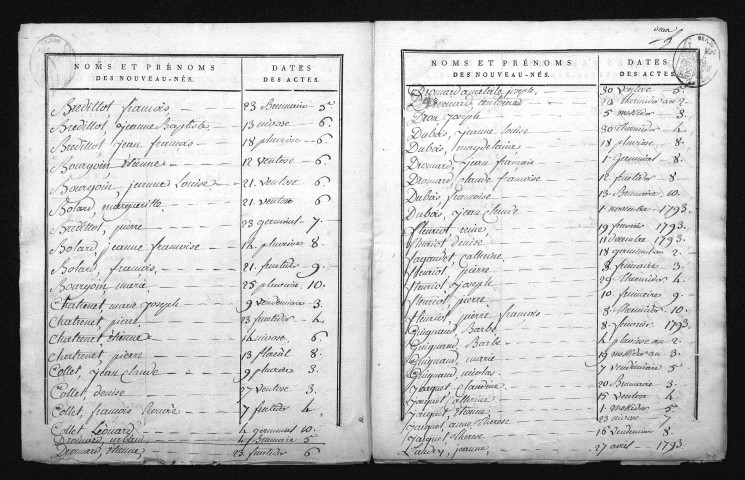 NOMS ET PRÉNOMS
DES NOUVEAU-NÉS.
DATES
DES ACTES.
Bredillot, francois 23 Brumaire 5
Bredillot, jeanne Baptiste 13 nivose 6
Bredillot jean francois 18 pluviose 6
Bourgoin, étienne 12 ventose 6
Bourgoin, jeanne Louise 21 ventose 6
Bolard, margueritte 21 ventose 6
Bredillot, pierre 23 germinal 7
Bolard jeanne francoise 14 pluviose 8
Bolard, francois 21 fructidor 9
Bourgoin marie 25 pluviose 10
Chatrenet, marie Joseph 9 vendemiaire 3
Chatrenet, pierre 23 fructidor 4
Chatrenet étienne 14 nivose 6
Chatrenet, pierre 13 floréal 8
Collet, jean Claude 9 pluviose 3
Collet denise 27 ventose 3
Collet, francois 7 fructidor 4
Collet Léonard 4 germinal 10
Drouard, urbain 4 Brumaire 5
Drouard, étienne 23 fructidor 6
deux
NOMS ET PRÉNOMS
DES NOUVEAU-NÉS.
DATES
DES ACTES.
Drouard joseph 30 Ventose 5
Drouard antoine 20 thermidor an 2
Dron joseph 5 messidor 3
Dubois, jeanne louise 30 thermidor 4
Dubois, magdelaine 18 pluviose 8
Drouard, jean francois 1 Germinal 8
Drouard, claude francoise 12 fructidor 8
Dubois francoise 13 Brumaire 10
Dubois, jean Claude 1 novembre 1793
fleuriot, reine 19 fevrier 1793
fleuriot denise 11 decembre 1793
catherine 18 germinal an 2
fleuriot, pierre 8 frimaire 3
fleuriot joseph 29 thermidor 4
fleuriot, pierre 10 frimaire 9
fleuriot, pierre francois 8 thermidor 10
Guignard Barbe 8 fevrier 1793
Guignard, Barbe 4 pluviose an 2
Guignard, marie 19 messidor an 3
Guignard nicolas 7 vendémiaire 5
Jaquet, Claudine 20 Brumaire 3
Jaquet Catherine 15 Ventose 4
Jaquet, étienne 1 messidor 5
Jaquet, anne thérese 23 nivose 7
Jaquet, therese 16 vendemiaire 8
Landry, jeanne 27 avril 1793